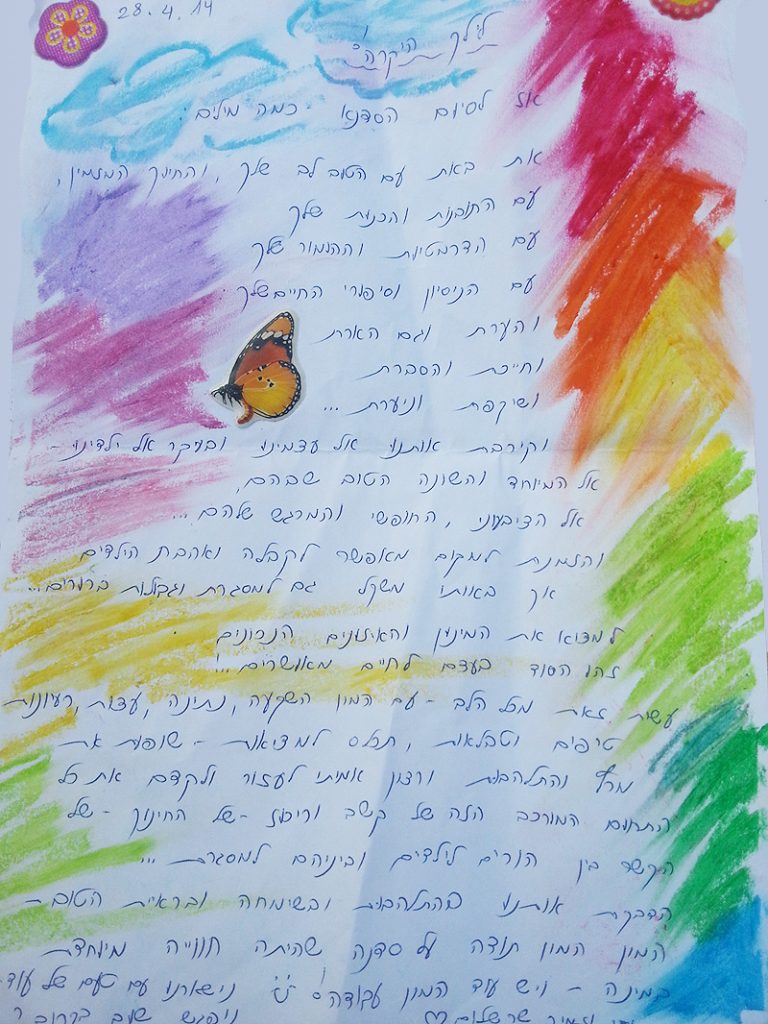 28.4.14
לילך היקרה!
אז לסיום הסדנא כמה מילים:
את באת עם הטוב לב שלך, והחינוך המצמין,
עם התובנות והכנות שלך
עם הדרמטיות וההומור שלך
עם הניסיון וסיפורי החיים שלך
והערת וגם הארת
וחייכת והסברת
ושיקפת וניערת ...
וקירבת אותנו אל עצמינו ובעיקר אל ילדינו -
אל המיוחד והשונה הטוב שבהם,
אל הציבעוני, החופשי והמרגש שלהם ...
והזמנת למקום מאפשר לקבלה ואהבת הילדים
אך באותו משקל גם למסגרת וגבולות ברורים ...
למצוא את המינון והאיזונים הנכונים
זהו הסוד בעצם לחיים מאושרים ...!
עשית זאת מכל הלב - עם המון השקעה, נתינה, עצות, רעיונות
טיפים וטבלאות, תכלס למציאות - שופעת את
מרץ והתלהבות ורצון אמיתי לעזור ולקדם את כל
התחום המורכב הזה של קשב וריכוז - של החינוך - של
הקשר בין הורים לילדים וביניהם למסגרת ...
הדבקת אותנו בהתלהבות ובשימחה ובראית הטוב -
המון המון תודה על סדנה שהיתה חווייה מיוחדת
במינה - ויש עוד המון עבודה! נישארנו עם טעם של עוד
וניפגש שוב בקרוב